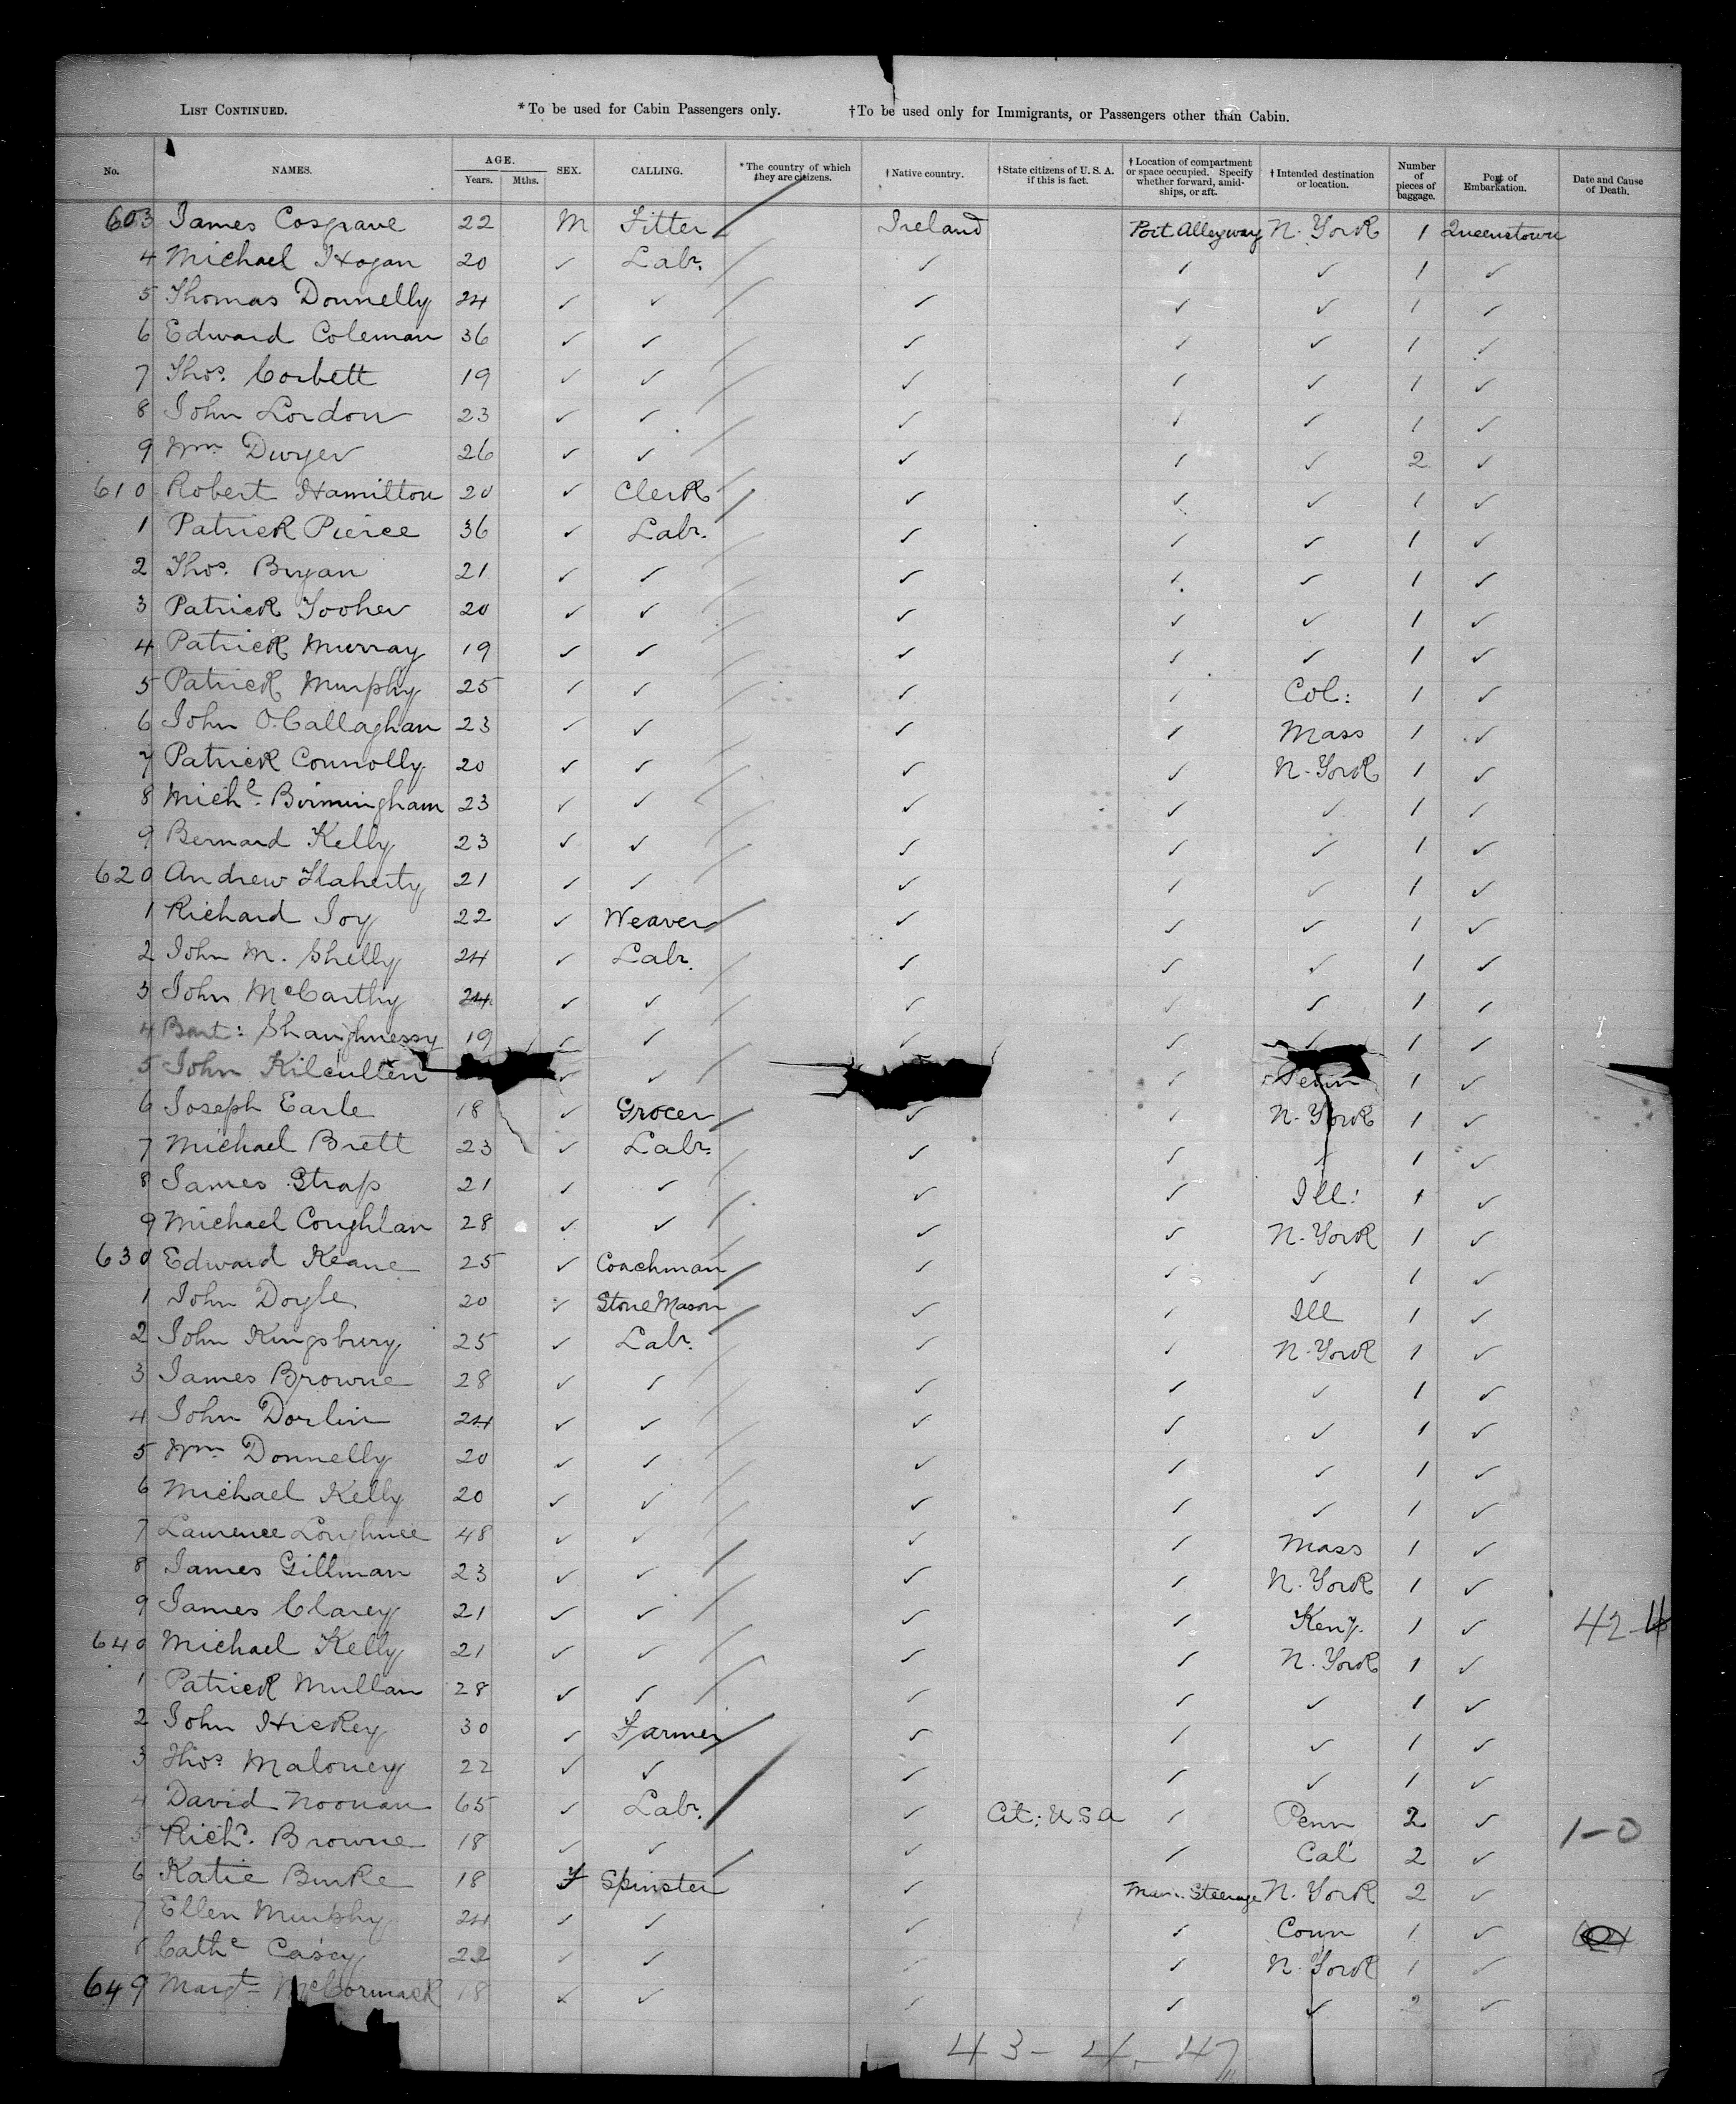 LIST CONTINUED. *To be used for Cabin Passengers only. †To be used only for Immigrants, or Passengers other than Cabin.
No. NAMES. AGE. Years. Mths. SEX. CALLING. *The country of which they are citizens. †Native country. †State citizens of U. S. A. if this is fact. †Location of compartment or space occupied. Specify whether forward, amidships, or aft. †Intended destination or location. Number of pieces of baggage. Port of Embarkation. Date and Cause of Death.
603 James Cosgrave 22 M Fitter Ireland Port Alleyway N. York 1 Queenstown
4 Michael Hogan 20 ✓ Labr. ✓ ✓ ✓ 1 ✓
5 Thomas Donnelly 24 ✓ ✓ ✓ ✓ ✓ 1 ✓
6 Edward Coleman 36 ✓ ✓ ✓ ✓ ✓ 1 ✓
7 Thos. Corbett 19 ✓ ✓ ✓ ✓ ✓ 1 ✓
8 John Lordon 23 ✓ ✓ ✓ ✓ ✓ 1 ✓
9 Wm Dwyer 26 ✓ ✓ ✓ ✓ ✓ 2 ✓
610 Robert Hamilton 20 ✓ Clerk ✓ ✓ ✓ 1 ✓
1 Patrick Pierce 36 ✓ Labr. ✓ ✓ ✓ 1 ✓
2 Thos. Bryan 21 ✓ ✓ ✓ ✓ ✓ 1 ✓
3 Patrick Tooher 20 ✓ ✓ ✓ ✓ ✓ 1 ✓
4 Patrick Murray 19 ✓ ✓ ✓ ✓ ✓ 1 ✓
5 Patrick Murphy 25 ✓ ✓ ✓ ✓ Col: 1 ✓
6 John O'Callaghan 23 ✓ ✓ ✓ ✓ Mass 1 ✓
7 Patrick Connolly 20 ✓ ✓ ✓ ✓ N. York 1 ✓
8 Michl. Birmingham 23 ✓ ✓ ✓ ✓ ✓ 1 ✓
9 Bernard Kelly 23 ✓ ✓ ✓ ✓ ✓ 1 ✓
620 Andrew Flaherty 21 ✓ ✓ ✓ ✓ ✓ 1 ✓
1 Richard Joy 22 ✓ Weaver ✓ ✓ ✓ 1 ✓
2 John M. Shelly 24 ✓ Labr. ✓ ✓ ✓ 1 ✓
3 John McCarthy 24 ✓ ✓ ✓ ✓ ✓ 1 ✓
4 Bart: Shaughnessy 19 ✓ ✓ ✓ ✓ ✓ 1 ✓
5 John Kilcullen ✓ ✓ ✓ 1 ✓
6 Joseph Earle 18 ✓ Grocer ✓ ✓ N. York 1 ✓
7 Michael Brett 23 ✓ Labr. ✓ ✓ ✓ 1 ✓
8 James Strap 21 ✓ ✓ ✓ ✓ Ill: 1 ✓
9 Michael Coughlan 28 ✓ ✓ ✓ ✓ N. York 1 ✓
630 Edward Keane 25 ✓ Coachman ✓ ✓ ✓ 1 ✓
1 John Doyle 20 ✓ Stone Mason ✓ ✓ Ill 1 ✓
2 John Kingsbury 25 ✓ Labr. ✓ ✓ N. York 1 ✓
3 James Browne 28 ✓ ✓ ✓ ✓ ✓ 1 ✓
4 John Dorlin 24 ✓ ✓ ✓ ✓ ✓ 1 ✓
5 Wm Donnelly 20 ✓ ✓ ✓ ✓ ✓ 1 ✓
6 Michael Kelly 20 ✓ ✓ ✓ ✓ ✓ 1 ✓
7 Laurence Loughnee 48 ✓ ✓ ✓ ✓ Mass 1 ✓
8 James Gillman 23 ✓ ✓ ✓ ✓ N. York 1 ✓
9 James Clarey 21 ✓ ✓ ✓ ✓ Keny. 1 ✓ 42-4
640 Michael Kelly 21 ✓ ✓ ✓ ✓ N. York 1 ✓
1 Patrick Mullan 28 ✓ ✓ ✓ ✓ ✓ 1 ✓
2 John Hickey 30 ✓ Farmer ✓ ✓ ✓ 1 ✓
3 Thos. Maloney 22 ✓ ✓ ✓ ✓ ✓ 1 ✓
4 David Noonan 65 ✓ Labr. ✓ Cit: U.S.A ✓ Penn 2 ✓ 1-0
5 Richd. Browne 18 ✓ ✓ ✓ ✓ Cal 2 ✓
6 Katie Burke 18 F Spinster ✓ Steerage N. York 2 ✓
7 Ellen Murphy 24 ✓ ✓ ✓ ✓ Conn 1 ✓
8 Cathe Casey 22 ✓ ✓ ✓ ✓ N. York 1 ✓
649 Margt. McCormack 18 ✓ ✓ ✓ ✓ ✓ 2 ✓
43 - 4 - 47